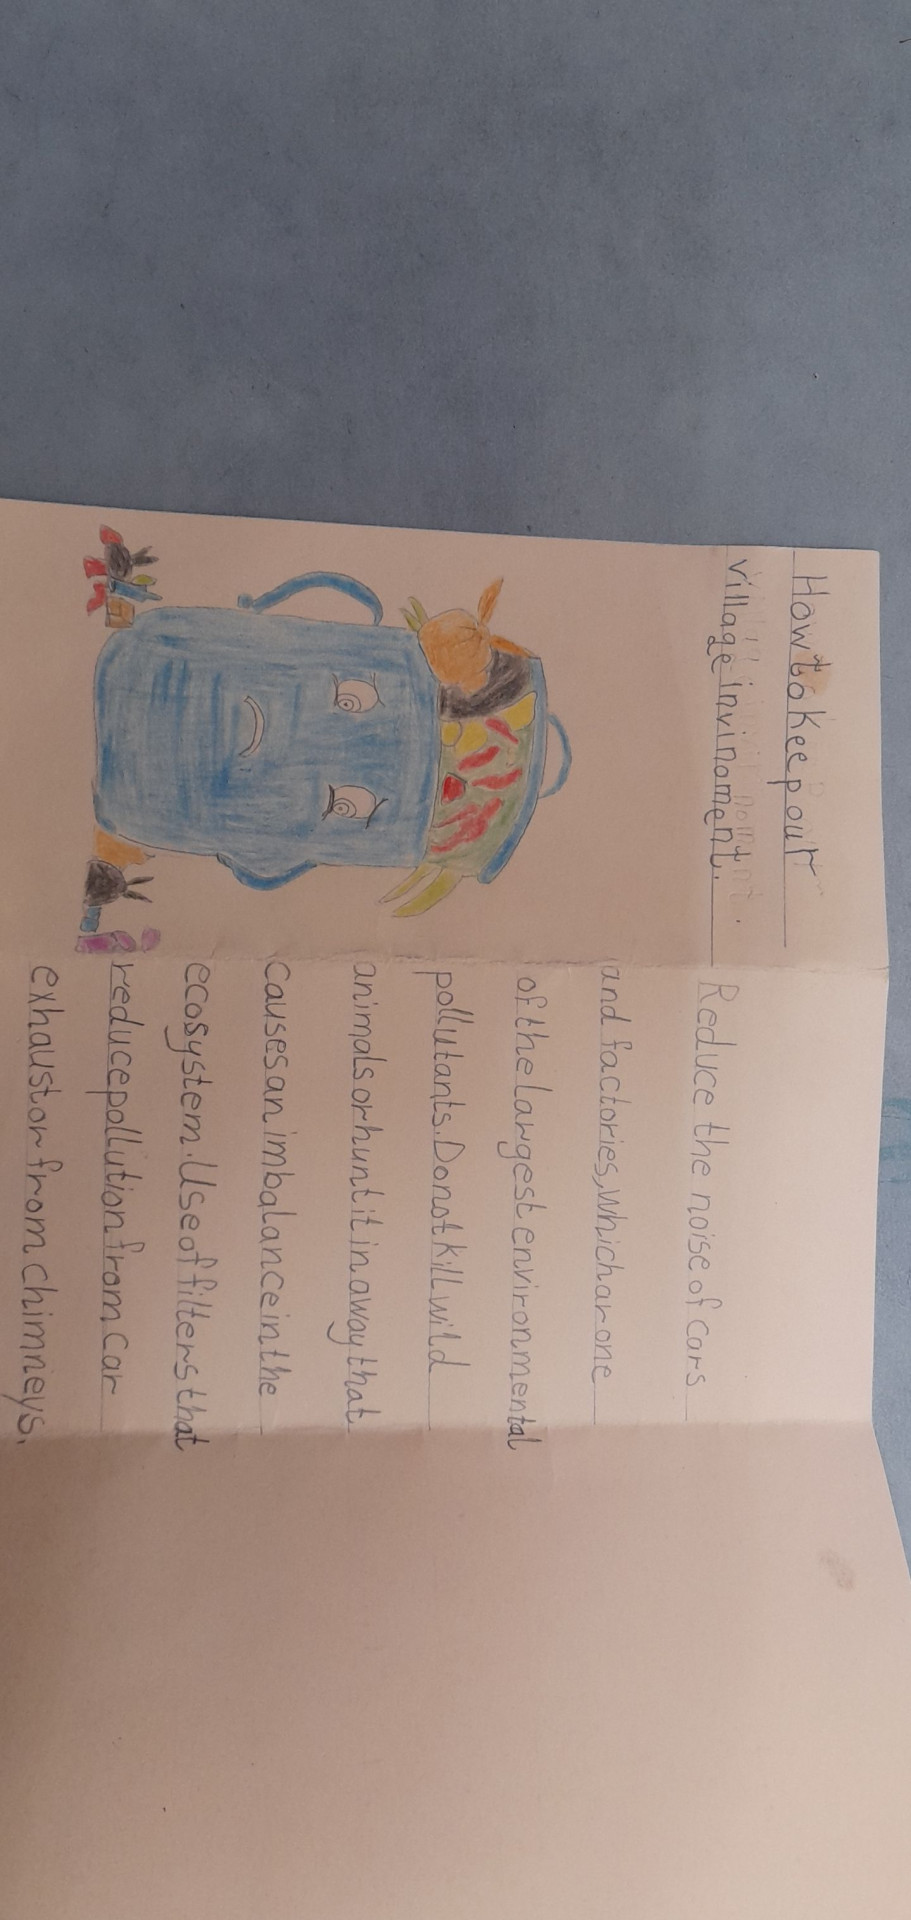 How to keep our
village invinament.
Reduce the noise of cars
and factories, which ar one
of the largest environmental
pollutants. Do not kill wild
animals or hunt it in a way that
causes an imbalance in the
ecosystem. Use of filters that
reduce pollution from car
exhaust or from chimneys.